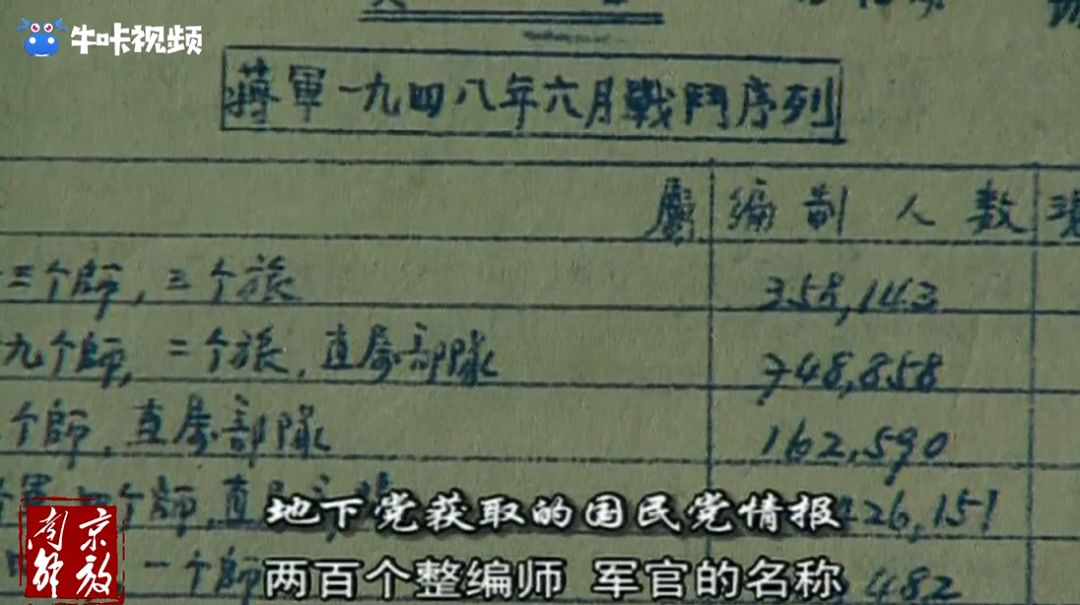 牛咔视频
蔣軍一九四八年六月戰鬥序列
屬 编制人数 現
三个師，三个旅 358,143
九个師，二个旅，直属部隊 748,858
个師，直属部隊 162,590
个師，直 426,151
一个師 482
地下党获取的国民党情报
两百个整编师 军官的名称
南京解放